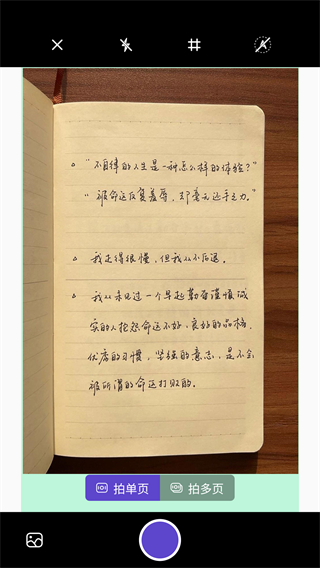 "不自律的人生是一种怎么样的体验?"
"被命运反复羞辱,却毫无还手之力。"
我走得很慢,但我从不后退。
我从未见过一个早起勤奋谨慎诚
实的人抱怨命运不好,良好的品格,
优良的习惯,坚强的意志,是不会
被所谓的命运打败的。
拍单页 拍多页